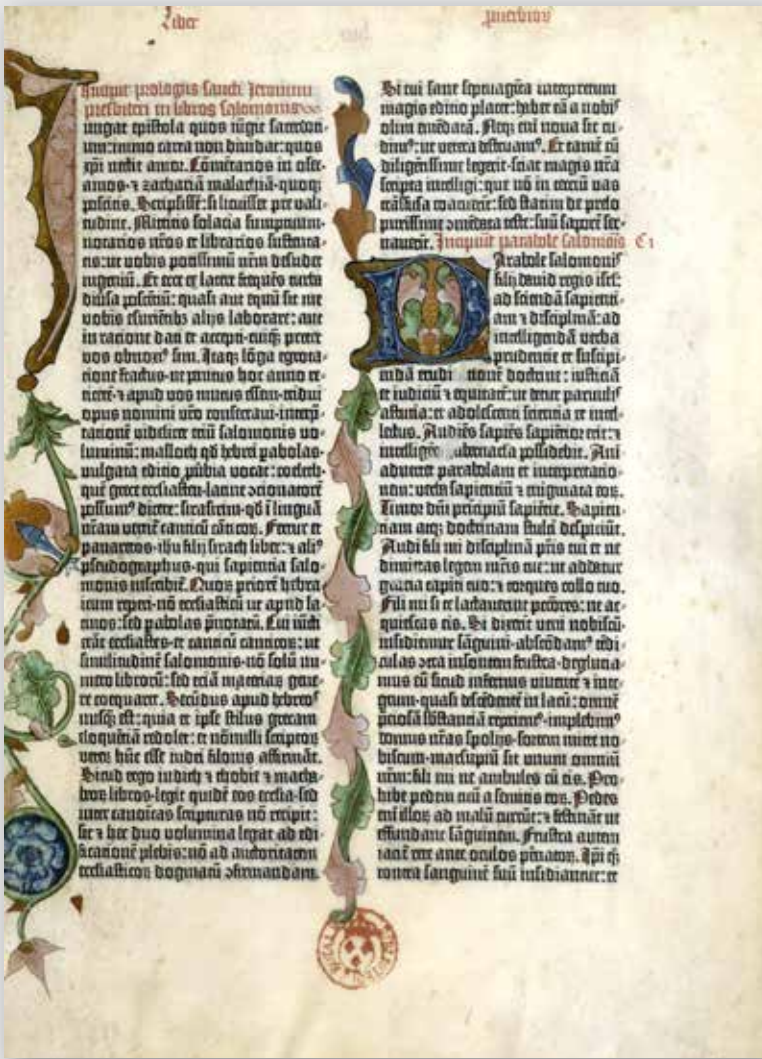 Liber
puerbiorū
Incipit prologus sancti Jeronimi
presbiteri in libros salomonis
iungat epistola quos iūgit sacerdoti-
um: immo carta non diuidat: quos
xp̄i nectit amor. Cōmētarios in osee.
amos. ⁊ zachariā malachiā. quoq;
poscitis. Scripsissē: si licuisset pre vali-
tudine. Mittitis solacia sumptuum.
notarios nr̄os et librarios sustenta-
tis: ut vobis potissimū nr̄m desudet
ingeniū. Et ecce ex latere freq̄ns turba
diūsa poscētiū: quasi aut equū sit me
vobis esuriētib; alijs laborare: aut
in ratione dati et accepti. cuiq; preter
vos obnoxꝰ sim. Itaq; lōga egrota-
tione fractus. ne penitus hoc anno re-
ticerē ⁊ apud vos mutus essem. tridui
opus nomini vr̄o consecraui. interp̄-
tationē videlicet triū salomonis vo-
luminū: masloth qd̄ hebrei pabolas.
vulgata editio p̄ubia vocat: coeleth.
quē grece ecclesiasten. latine ↄcionatorē
possumꝰ dicere: sirasirim. qd̄ ī linguā
nr̄am vertit̄ canticū cāticoꝝ. Fertur et
panaretos. ihu filij sirach liber: ⁊ aliꝰ
pseudographus. qui sapientia salo-
monis inscribit̄. Quoꝝ priorē hebra-
icum repperi. nō ecclesiasticū ut apud la-
tinos: sed pabolas p̄notatū. Cui iūcti
erāt ecclesiastes. et canticū canticoꝝ: ut
similitudinē salomonis. nō solū nu-
mero librorū: sed etiā materiaꝝ gene-
re coequaret. Secūdus apud hebreos
nusq̄ est: quia et ipse stilus grecam
eloquētiā redolet: et nōnulli scriptoꝝ
veteꝝ hūc esse iudei filonis affirmāt.
Sicud ergo iudith ⁊ thobie ⁊ macha-
beoꝝ libros. legit quidē eos ecclesia. sed
inter canonicas scripturas nō recipit:
sic ⁊ hec duo volumina legat ad edi-
ficationē plebis: nō ad auctoritatem
ecclesiasticoꝝ dogmatū ↄfirmandam.
Si cui sane septuaginta interpretum
magis editio placet: habet eā a nobis
olim emēdatā. Neq; em̄ noua sic cu-
dimꝰ: ut vetera destruamꝰ. Et tamē cū
diligētissime legerit. sciat magis nr̄a
scripta intelligi: que nō in terciū vas
trāsfusa coacuerīt: sed statim de prelo
purissime ↄmēdata teste: suū saporē ser-
uauerīt. Incipiūt parabole salomōis C 1
Parabole salomonis
filij dauid regis isrl̄:
ad sciendā sapienti-
am ⁊ disciplinā: ad
intelligendā verba
prudentie et suscipi-
endā erudi nonē doctrine: iusticiā
et iudiciū ⁊ equitatē: ut detur paruulis
astutia: et adolescenti scientia et intel-
lectus. Audiēs sapiēs sapiētior erit: ⁊
intelligēs gubernacla possidebit. Ani-
aduertet parabolam et interpretatio-
nem: verba sapientiū ⁊ enigmata eoꝝ.
Timor dn̄i principiū sapiētie. Sapien-
tiam atq; doctrinam stulti despiciūt.
Audi fili mi disciplinā pr̄is tui et ne
dimittas legem mr̄is tue: ut addatur
gracia capiti tuo: ⁊ torques collo tuo.
Fili mi si te lactauerint pctōres: ne ac-
quiescas eis. Si dixerīt veni nobiscū.
insidiemur sāguini. abscōdamꝰ tēdi-
culas ↄtra insontem frustra. deglucia-
mus eū sicud infernus viuentē ⁊ inte-
grum. quasi descēdentē in lacū: omnē
p̄ciosā sb̄stanciā reperiemꝰ. implebimꝰ
domus nr̄as spolijs. sortem mitte no-
biscum. marsupiū sit vnum omniū
nr̄m: fili mi ne ambules cū eis. Pro-
hibe pedem tuū a semitis eoꝝ. Pedes
em̄ illoꝝ ad malū currūt: ⁊ festināt ut
effundant sāguinem. Frustra autem
iacit̄ rete ante oculos pēnatoꝝ. Ip̄i q;
contra sanguinē suū insidiantur: et